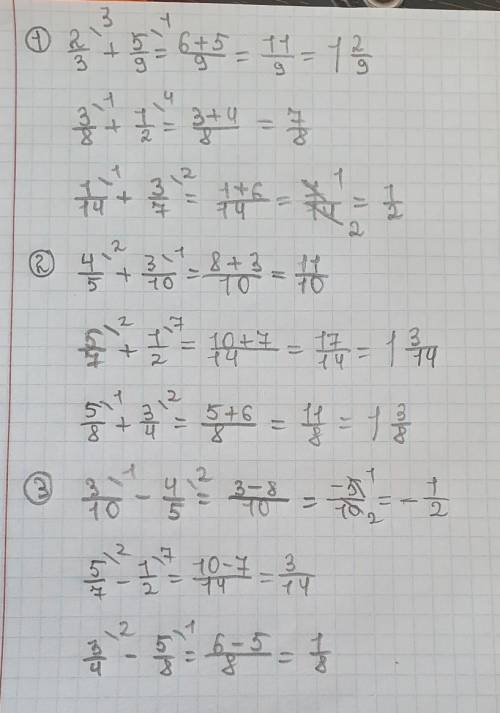 ① 2/3 \3 + 5/9 \1 = 6+5/9 = 11/9 = 1 2/9
3/8 \1 + 1/2 \4 = 3+4/8 = 7/8
1/14 \1 + 3/7 \2 = 1+6/14 = 7 1/14 2 = 1/2
② 4/5 \2 + 3/10 \1 = 8+3/10 = 11/10
5/7 \2 + 1/2 \7 = 10+7/14 = 17/14 = 1 3/14
5/8 \1 + 3/4 \2 = 5+6/8 = 11/8 = 1 3/8
③ 3/10 \1 - 4/5 \2 = 3-8/10 = -5 1/10 2 = - 1/2
5/7 \2 - 1/2 \7 = 10-7/14 = 3/14
3/4 \2 - 5/8 \1 = 6-5/8 = 1/8